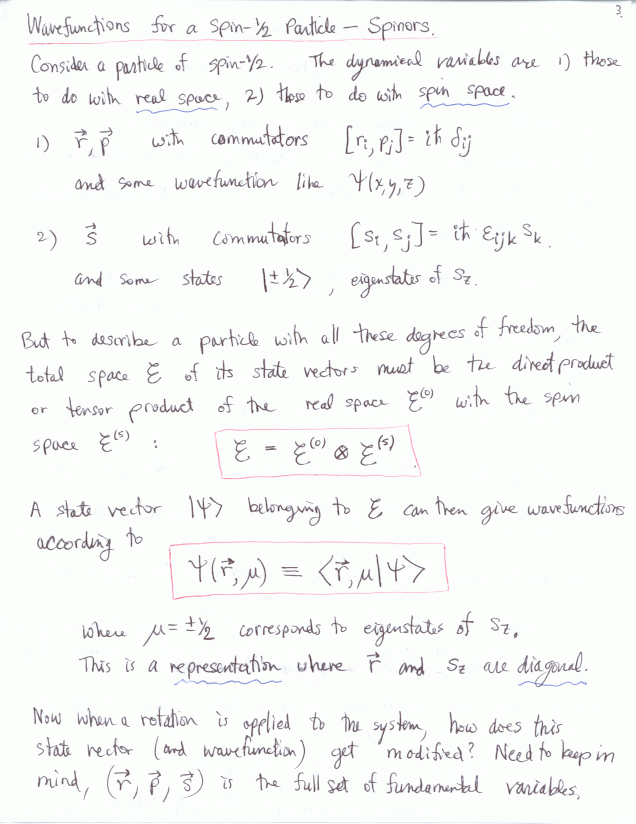 3
Wavefunctions for a Spin-½ Particle — Spinors.
Consider a particle of spin-½. The dynamical variables are 1) those
to do with real space, 2) those to do with spin space.
1) r⃗, p⃗ with commutators [rᵢ, pⱼ] = iħ δᵢⱼ
and some wavefunction like Ψ(x,y,z)
2) s⃗ with commutators [sᵢ, sⱼ] = iħ εᵢⱼₖ sₖ.
and some states |±½⟩, eigenstates of s_z.
But to describe a particle with all these degrees of freedom, the
total space ℰ of its state vectors must be the direct product
or tensor product of the real space ℰ⁽⁰⁾ with the spin
space ℰ⁽ˢ⁾ : ℰ = ℰ⁽⁰⁾ ⊗ ℰ⁽ˢ⁾.
A state vector |Ψ⟩ belonging to ℰ can then give wavefunctions
according to
Ψ(r⃗, μ) ≡ ⟨r⃗, μ|Ψ⟩
where μ = ±½ corresponds to eigenstates of s_z.
This is a representation where r⃗ and s_z are diagonal.
Now when a rotation is applied to the system, how does this
state vector (and wavefunction) get modified? Need to keep in
mind, (r⃗, p⃗, s⃗) is the full set of fundamental variables.